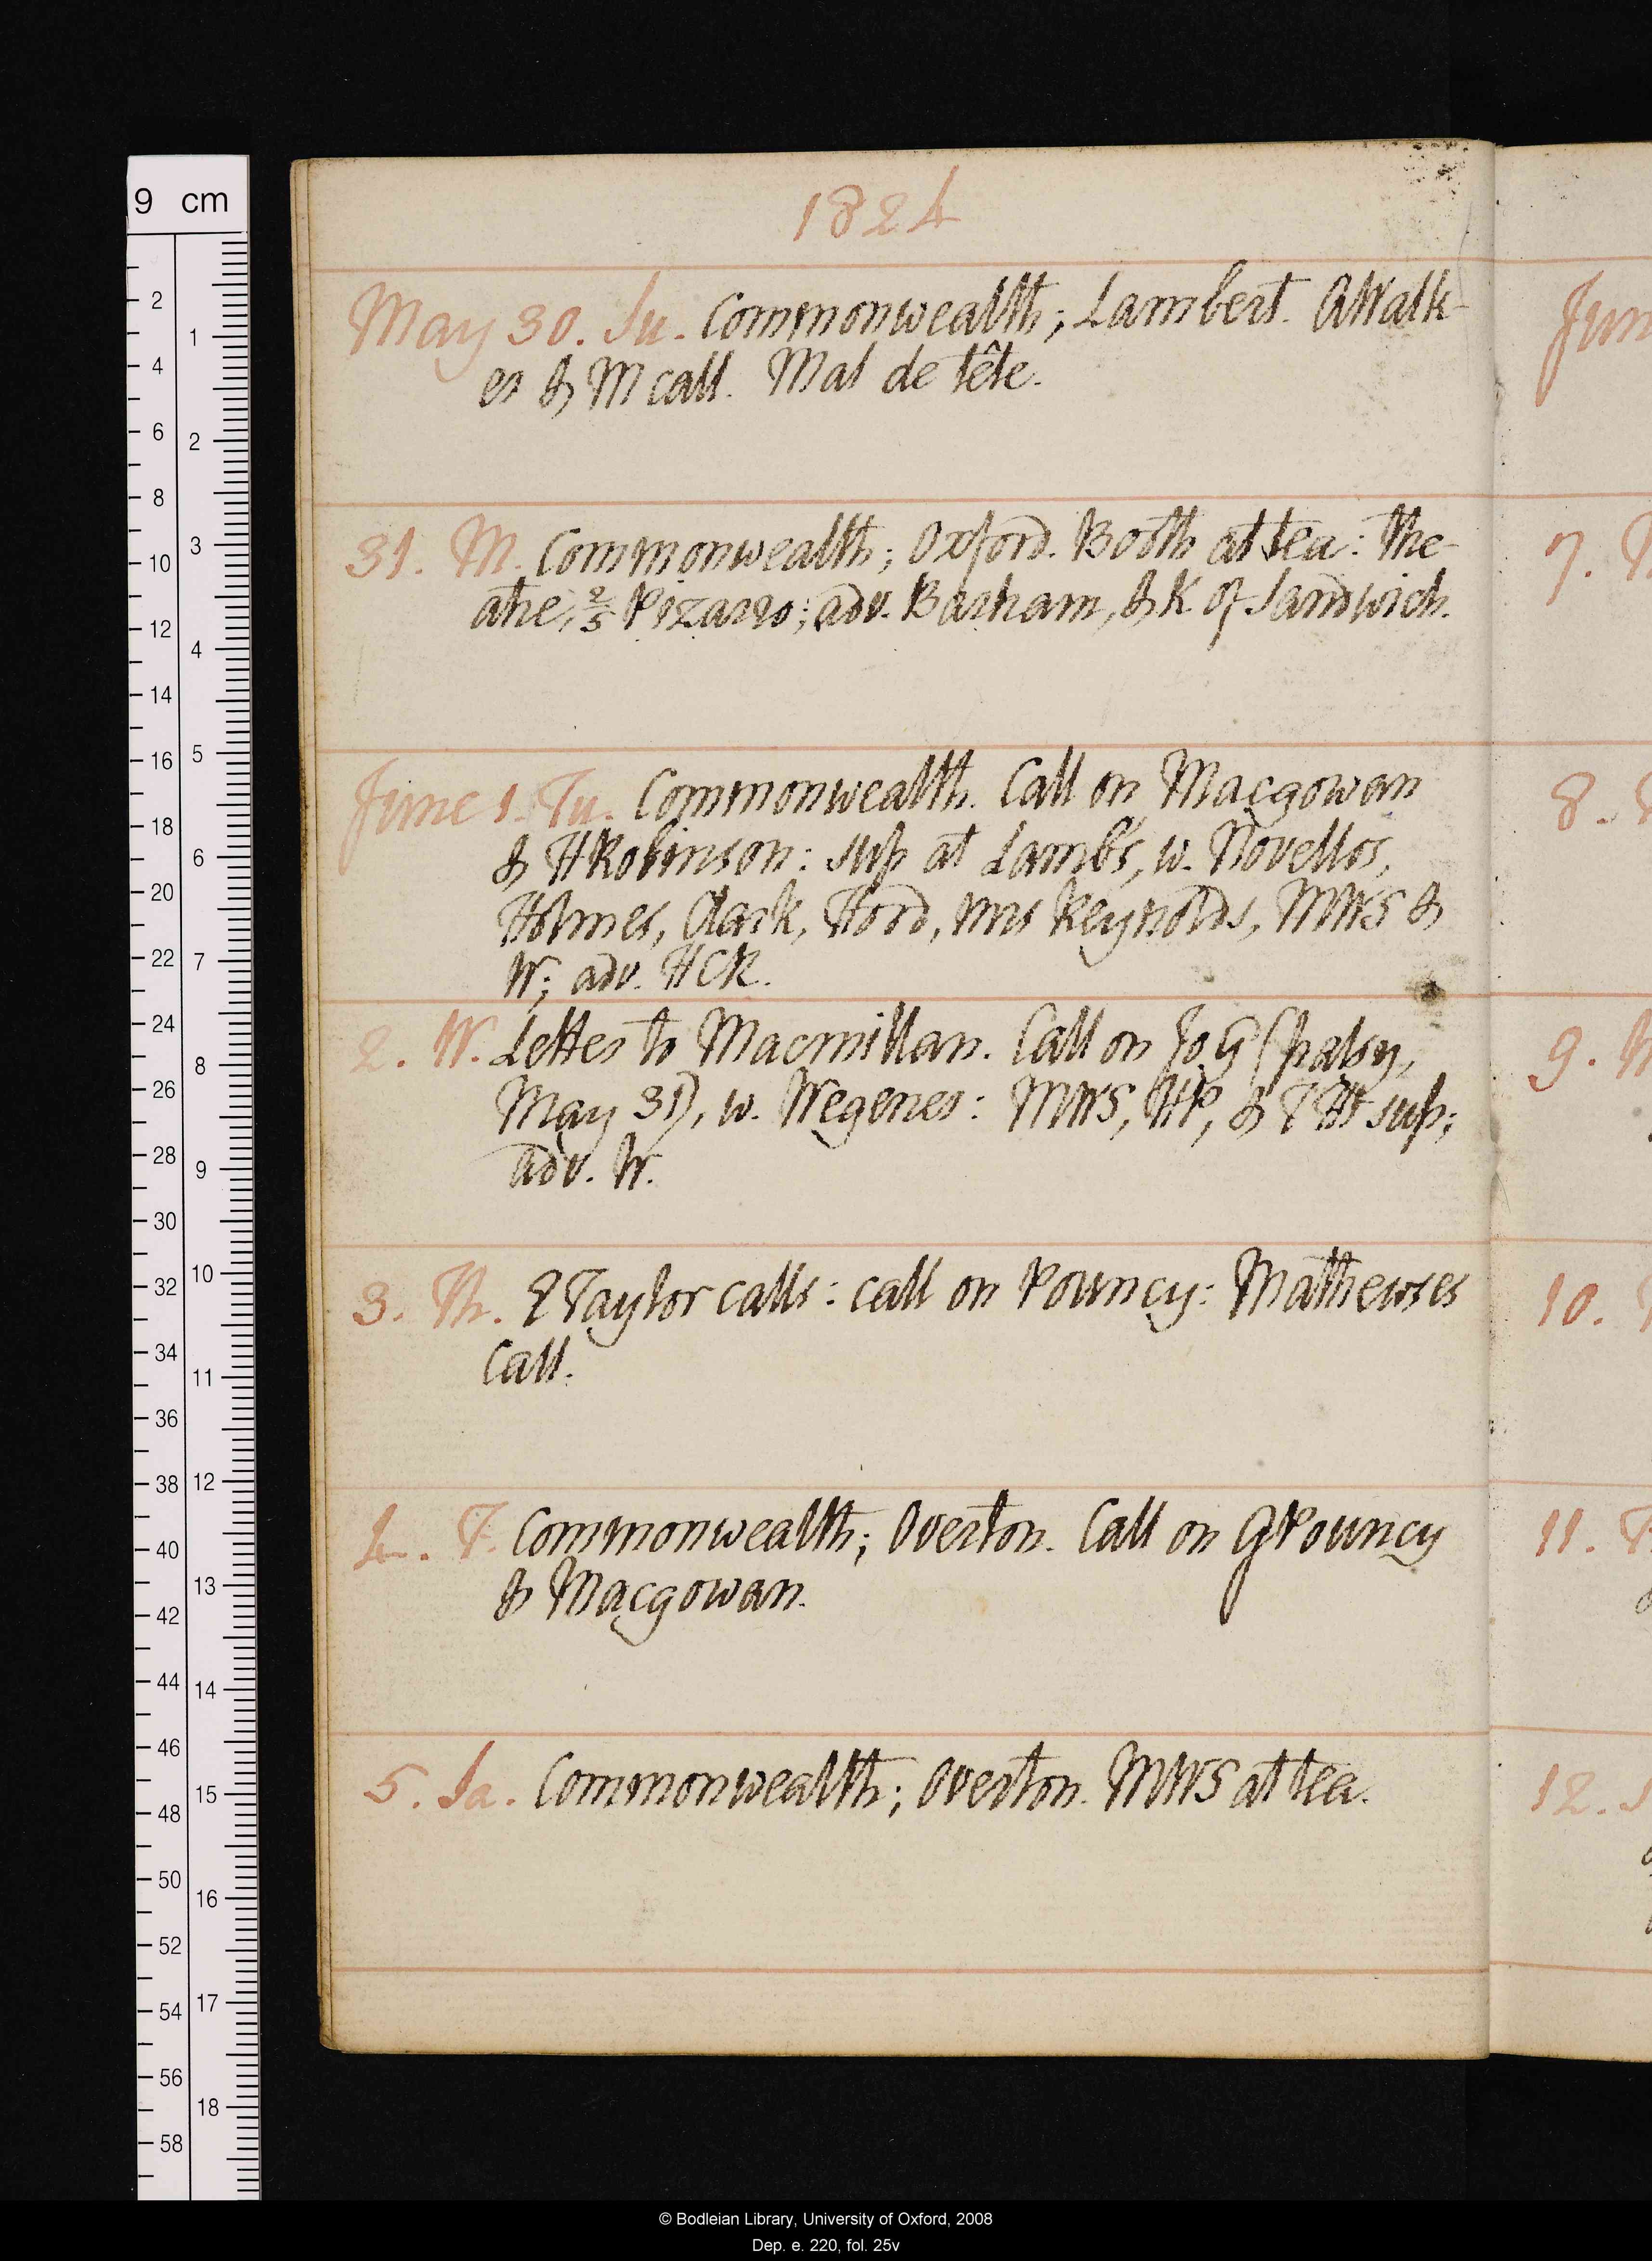 1824
May 30. Su. Commonwealth; Lambert. A Walk-
er & M call. Mal de tête.
31. M. Commonwealth; Oxford. Booth at tea: The-
atre, 2/5 Pizarro; adv. Barham, & K. of Sandwich.
June 1. Tu. Commonwealth. Call on Macgowan
& H Robinson: sup at Lamb's, w. Novellos,
Holmes, Clark, Hood, Mrs Reynolds, MWS &
W; adv. HCR.
2. W. Letter to Macmillan. Call on Jo G (palsy,
May 31), w. Wegener: MWS, & sup;
adv. W.
3. Th. E Taylor calls: call on Pouncy: Mathewses
call.
4. F. Commonwealth; Overton. Call on G Pouncy
& Macgowan.
5. Sa. Commonwealth; Overton. MWS at tea.
7.
8.
9.
10.
11.
12.
9 cm
2
4
6
8
10
12
14
16
18
20
22
24
26
28
30
32
34
36
38
40
42
44
46
48
50
52
54
56
58
1
2
3
4
5
6
7
8
9
10
11
12
13
14
15
16
17
18
© Bodleian Library, University of Oxford, 2008
Dep. e. 220, fol. 25v